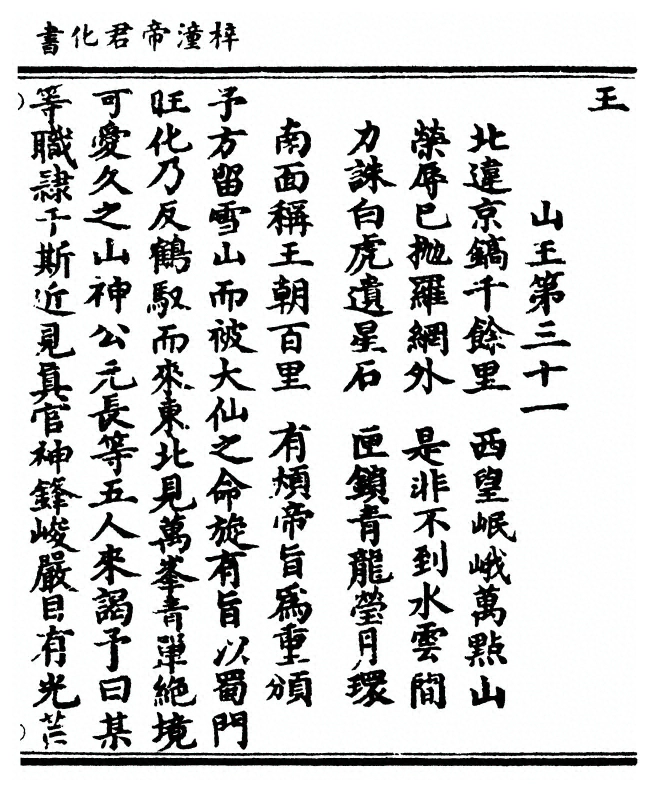 梓潼帝君化書
王
山王第三十一
北違京鎬千餘里 西望岷峨萬點山
榮辱已抛羅網外 是非不到水雲間
力誅白虎遺星石 匣鎖青龍瑩月環
南面稱王朝百里 有煩帝旨爲重頒
予方留雪山而被大仙之命旋有旨以蜀門
旺化乃反鶴馭而來東北見萬峯青 絶境
可愛久之山神公元長等五人來謁予曰某
等職隷于斯近見眞官神鋒峻嚴目有光芒